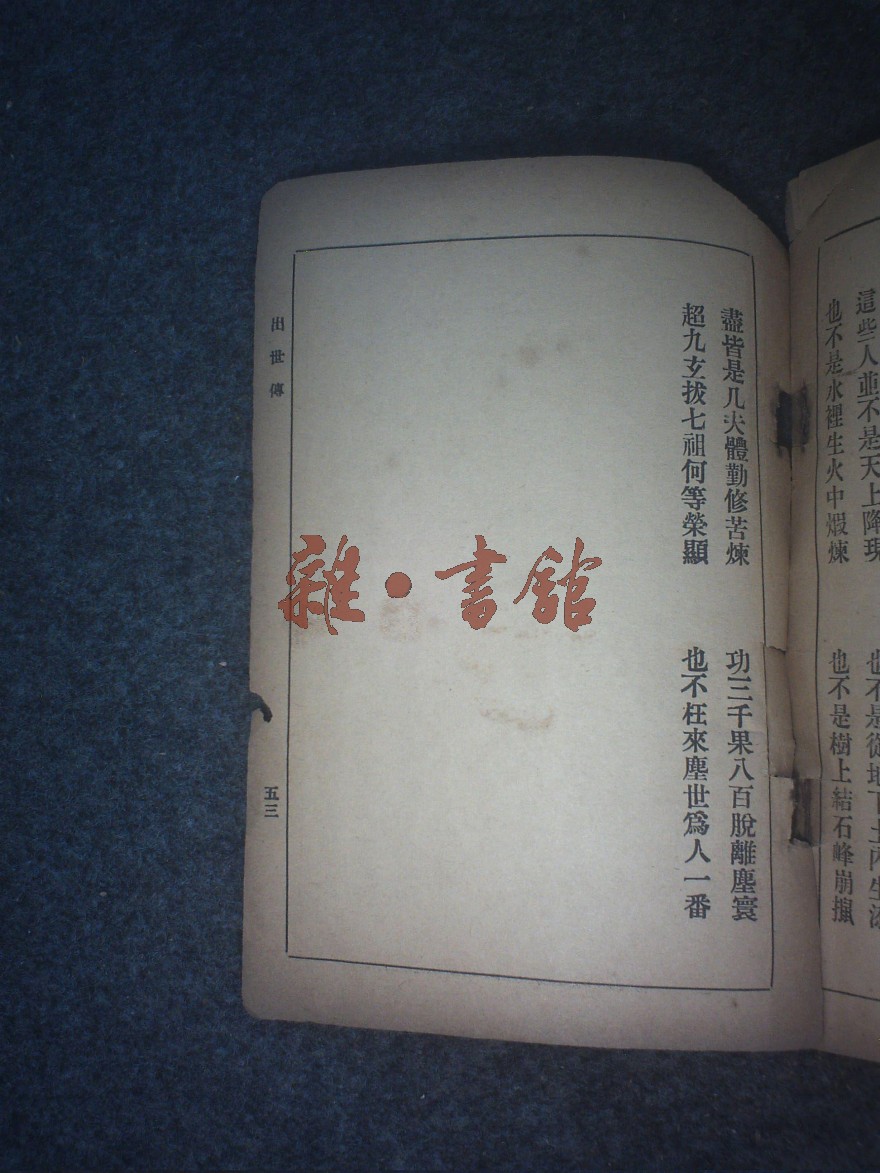 這些人並不是天上降現
也不是從地下土內生
也不是水裡生火中煆煉
也不是樹上結石峰崩
盡皆是凡夫體勤修苦煉
功三千果八百脫離塵寰
超九玄拔七祖何等榮顯
也不枉來塵世爲人一番
出世傳
五三
雜·書館